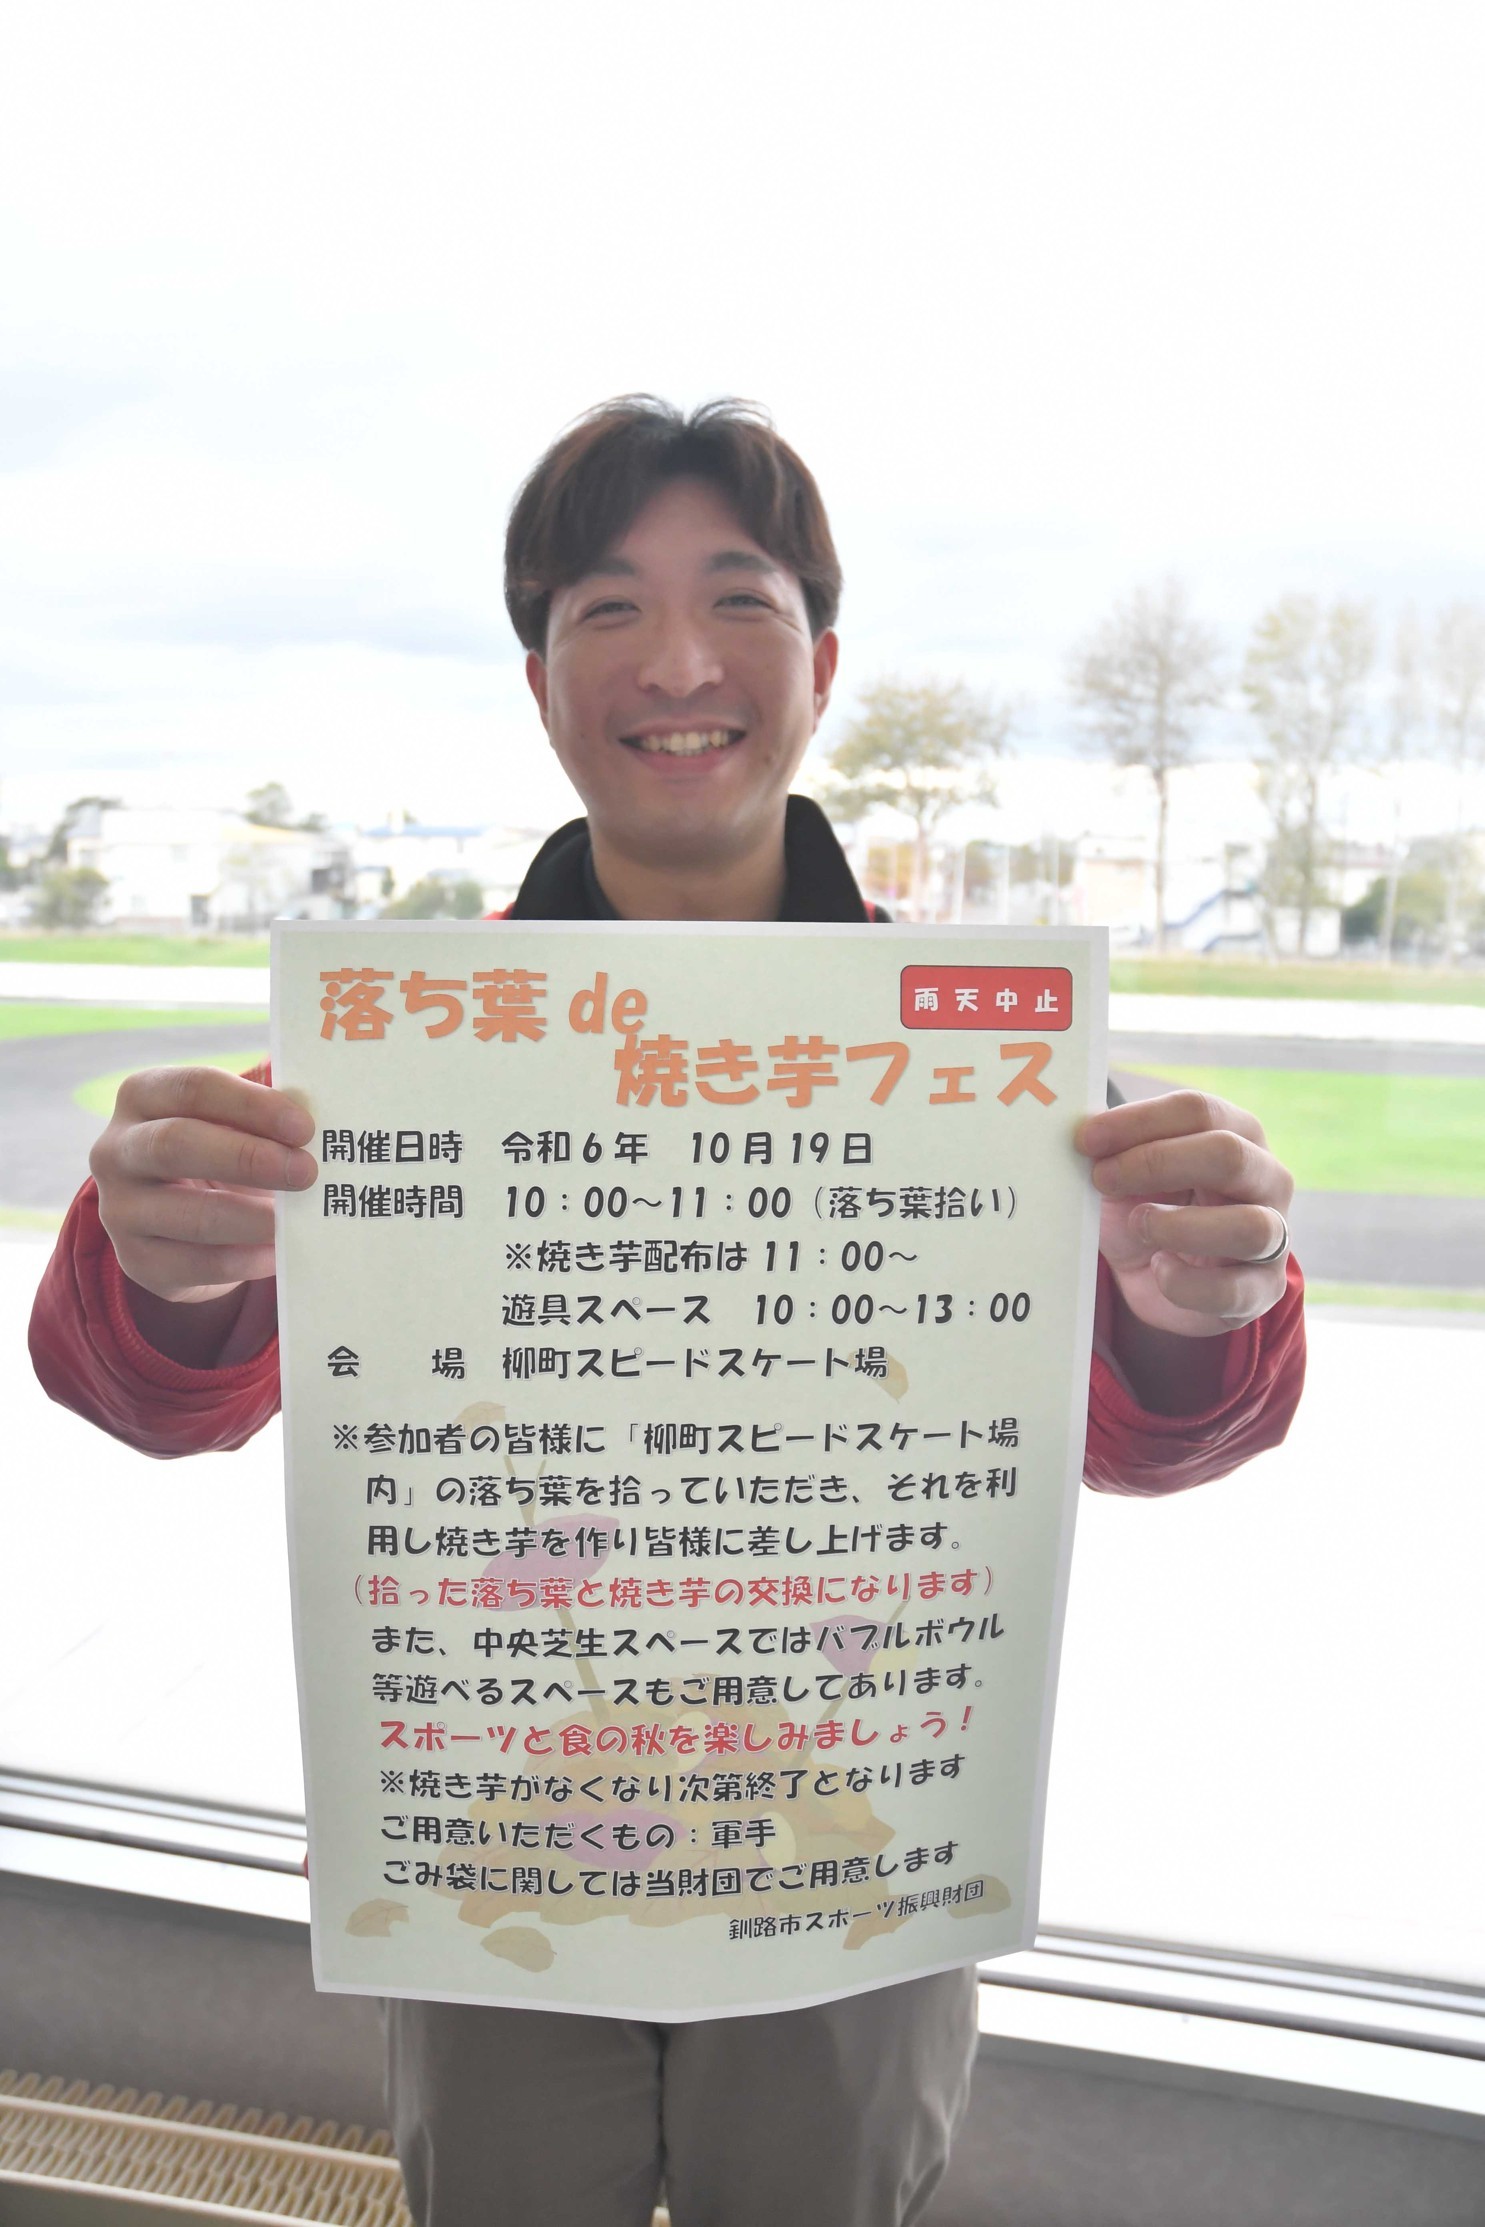 落ち葉 de
雨天中止
焼き芋フェス
開催日時　令和6年　10月19日
開催時間　10：00～11：00（落ち葉拾い）
※焼き芋配布は11：00～
遊具スペース　10：00～13：00
会　場　柳町スピードスケート場
※参加者の皆様に「柳町スピードスケート場
内」の落ち葉を拾っていただき、それを利
用し焼き芋を作り皆様に差し上げます。
（拾った落ち葉と焼き芋の交換になります）
また、中央芝生スペースではバブルボウル
等遊べるスペースもご用意してあります。
スポーツと食の秋を楽しみましょう！
※焼き芋がなくなり次第終了となります
ご用意いただくもの：軍手
ごみ袋に関しては当財団でご用意します
釧路市スポーツ振興財団